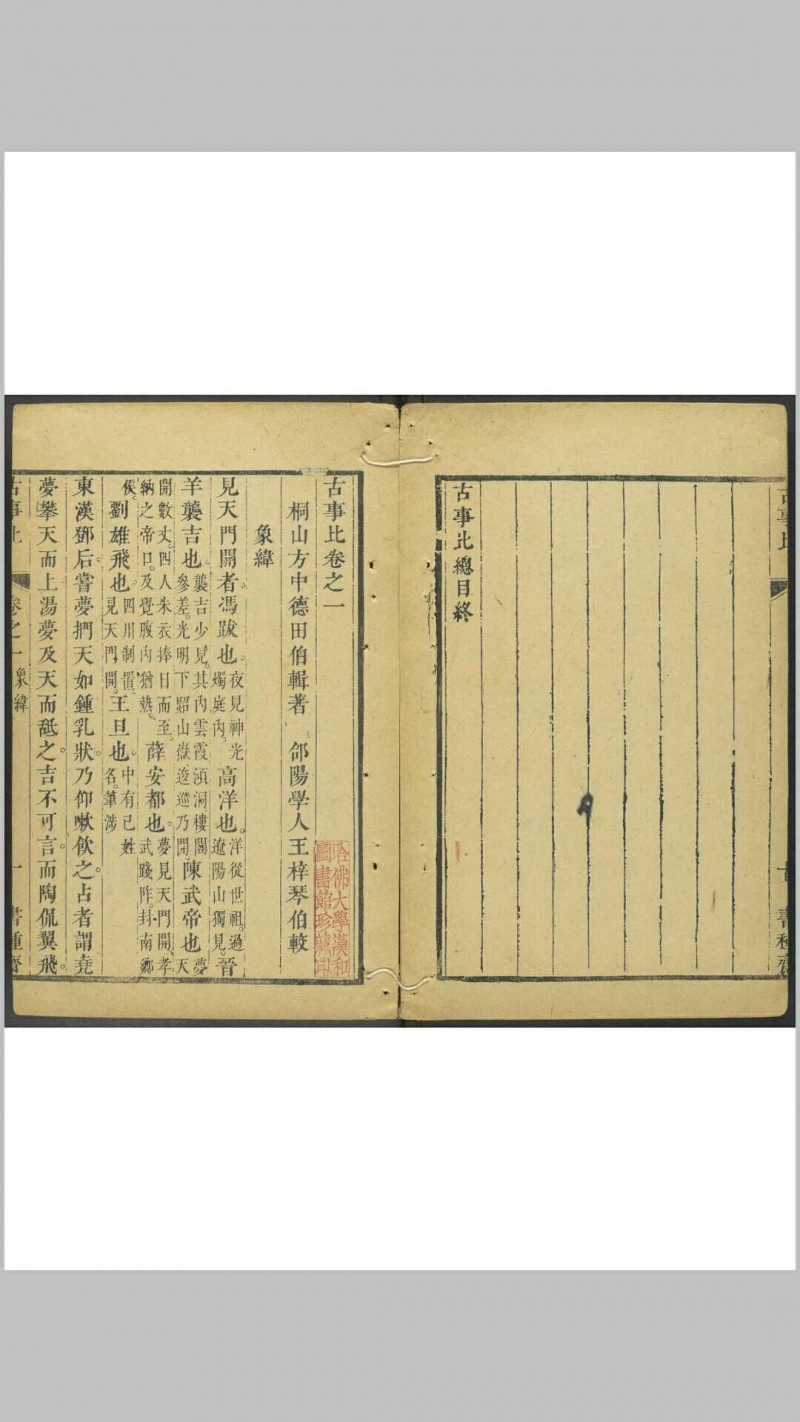 古事比
古事比總目終
古事比卷之一
桐山方中德田伯輯著 郃陽學人王梓琴伯較
哈佛大學漢和
圖書館珍藏印
象緯
見天門開者馮跋也夜見神光燭庭內高洋也洋從世祖過遼陽山獨見晉
羊襲吉也襲吉少見其內雲霞澒洞樓閣參差光明下炤山嶽逡巡乃開陳武帝也夢天
開數丈四人朱衣捧日而至納之帝口及覺腹內猶熱薛安都也夢見天門開孝武踐阼封南鄉
侯劉雄飛也四川制置見天門開王旦也中有己姓名筆涉
東漢鄧后嘗夢捫天如鍾乳狀乃仰嗽飲之占者謂堯
夢攀天而上湯夢及天而䑛之吉不可言而陶侃翼飛
古事比 卷之一 象緯 一 書種齋